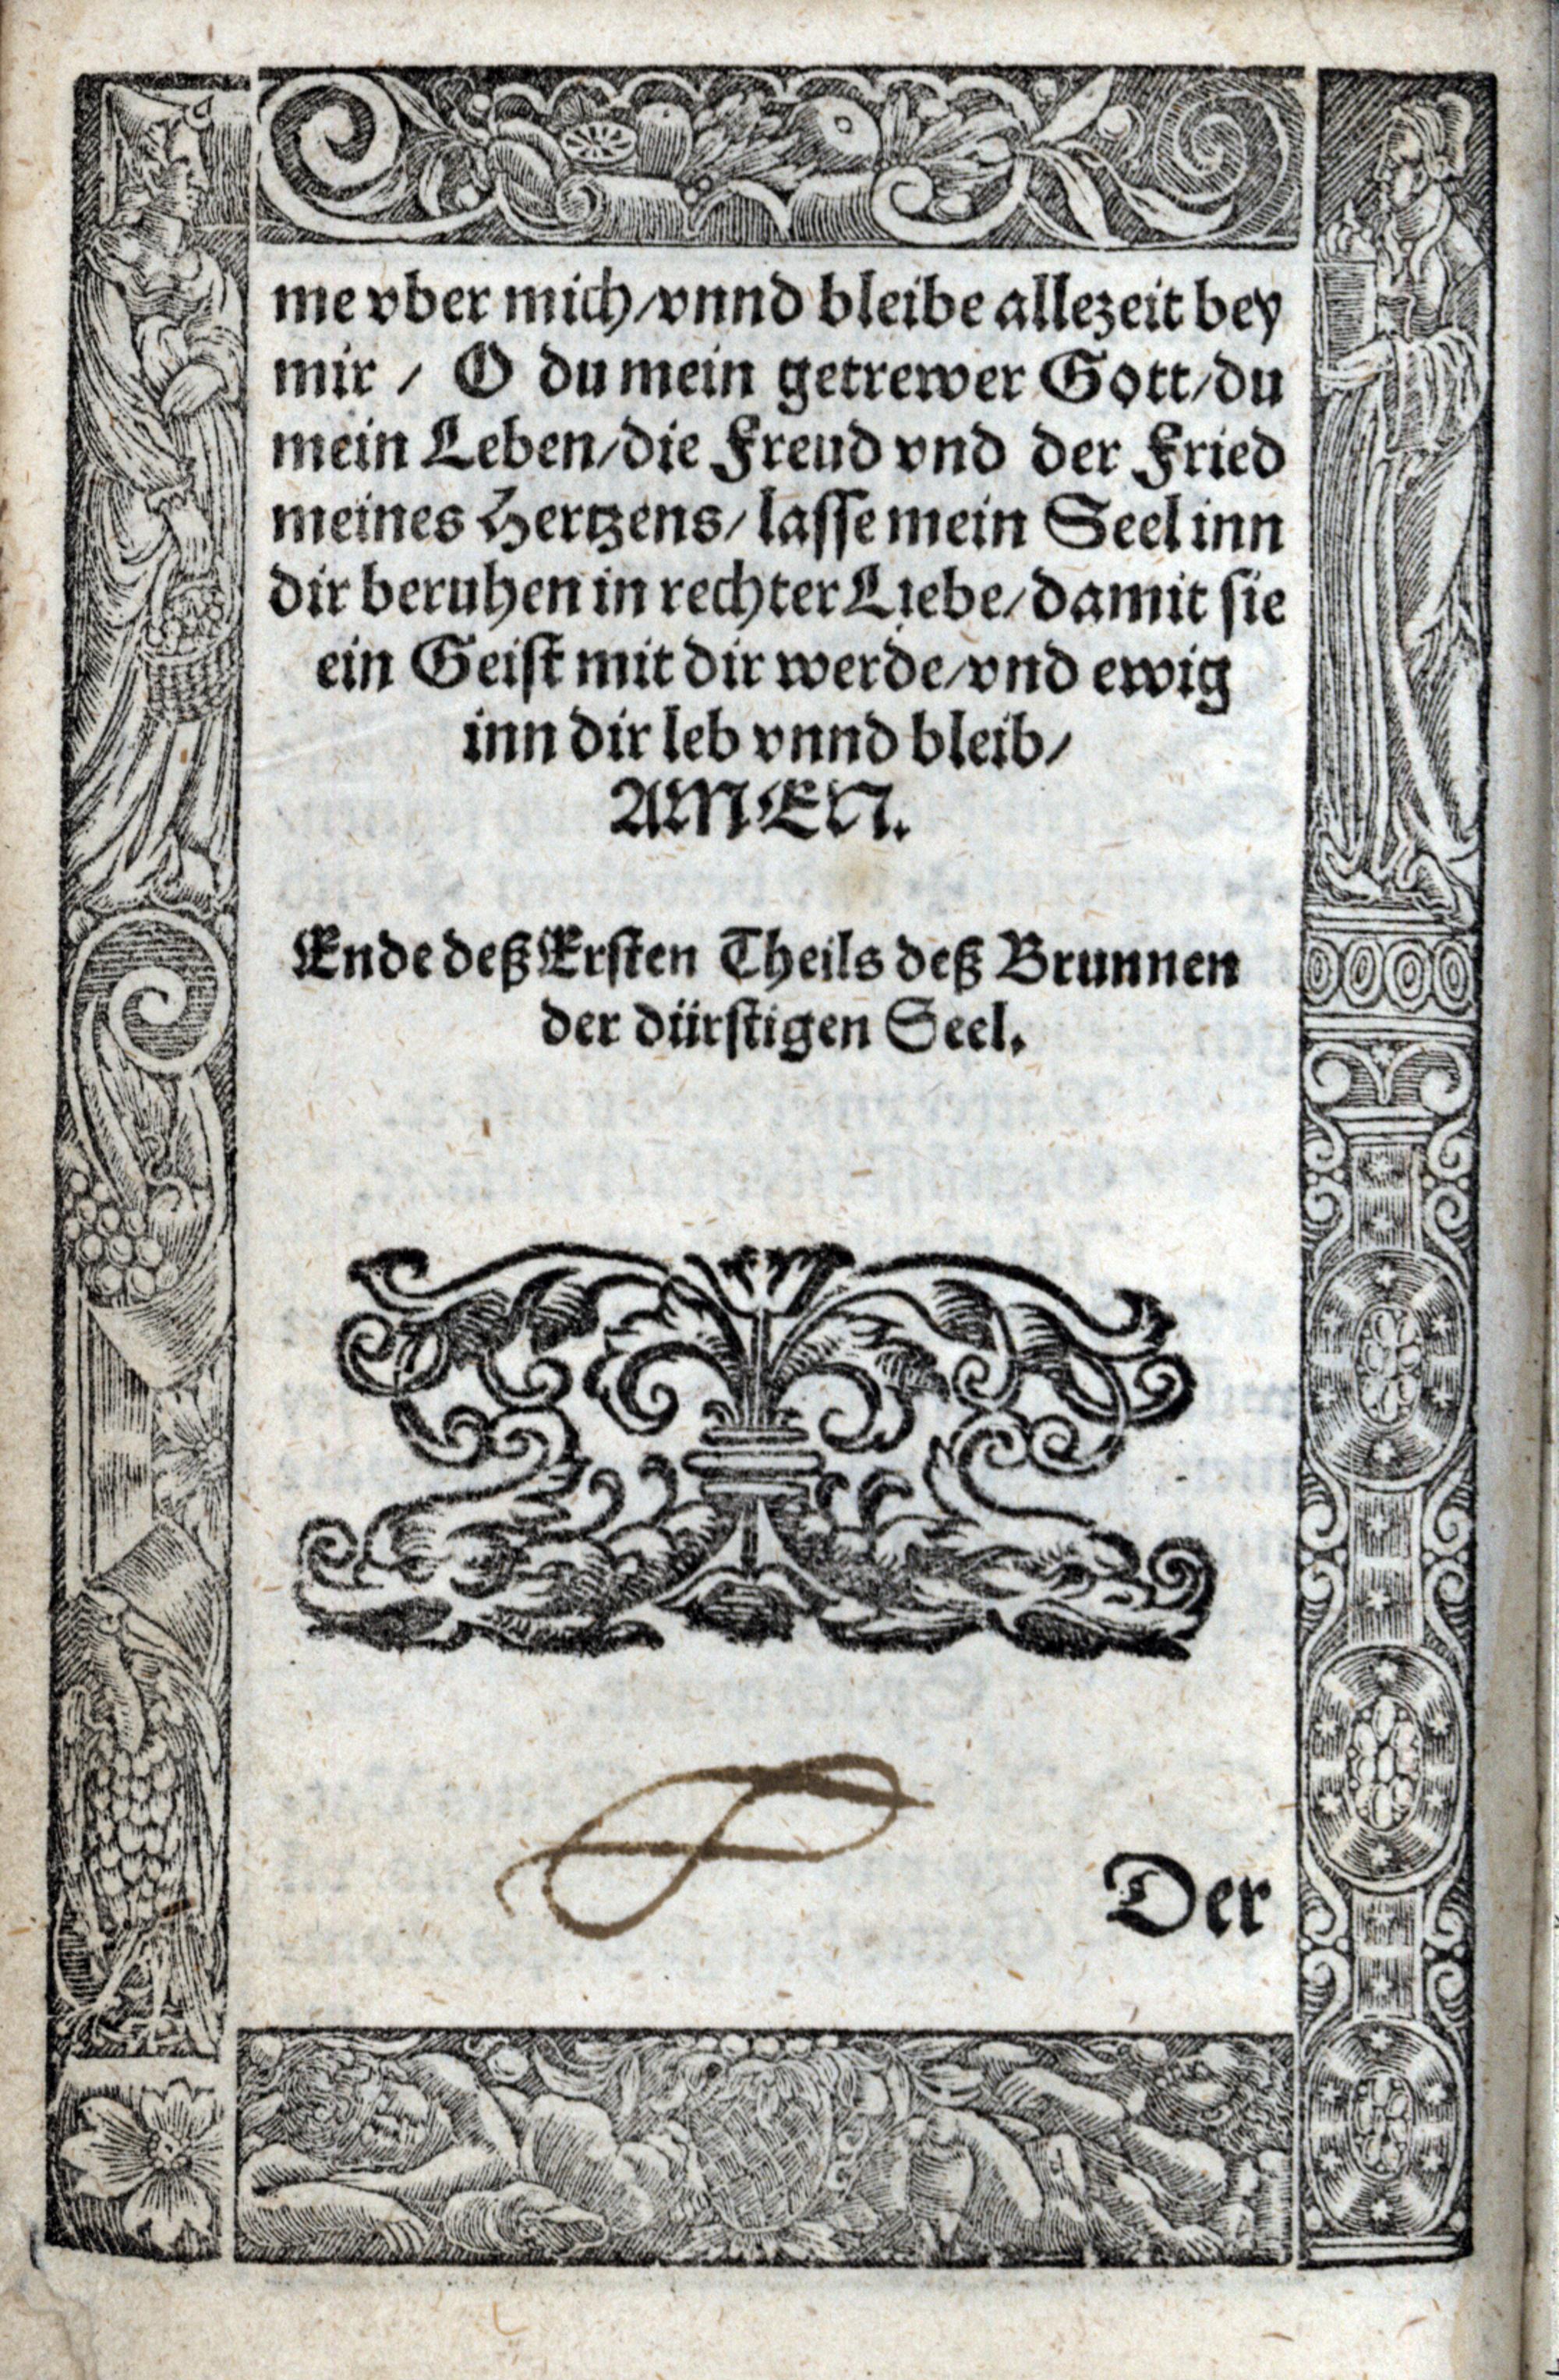 me vber mich/vnnd bleibe allezeit bey
mir / O du mein getrewer Gott/du
mein Leben/die Freud vnd der Fried
meines Hertzens/lasse mein Seel inn
dir beruhen in rechter Liebe/damit sie
ein Geist mit dir werde/vnd ewig
inn dir leb vnnd bleib/
AMEN.
Ende deß Ersten Theils deß Brunnen
der dürstigen Seel.
Der